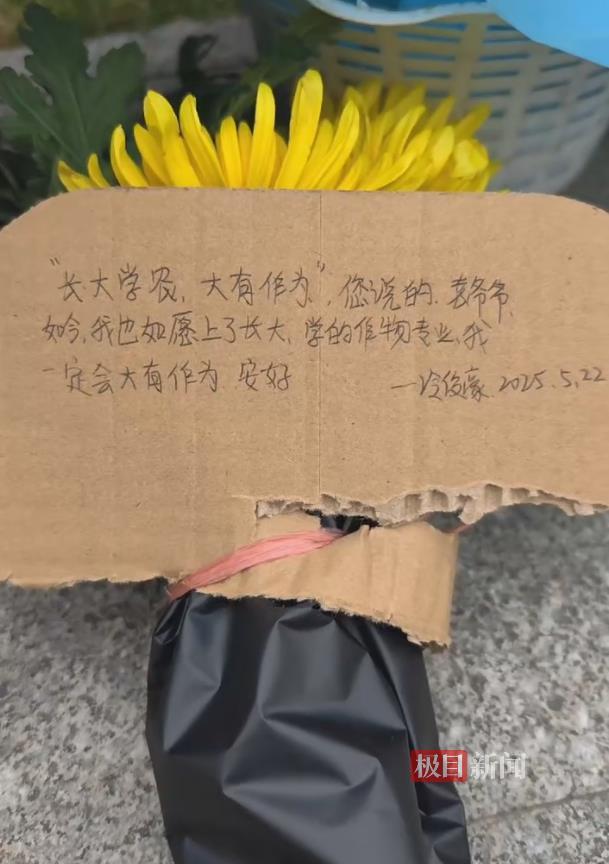 "长大学农，大有作为"，您说的，袁爷爷，
如今，我也如愿上了长大，学的作物专业，我
一定会大有作为，安好
—冷俊豪 2025.5.22
极目新闻